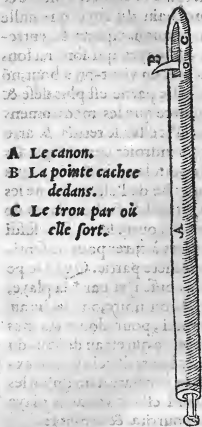 A Le canon.
B La pointe cachee
dedans.
C Le trou par où
elle sort.
B
C
A